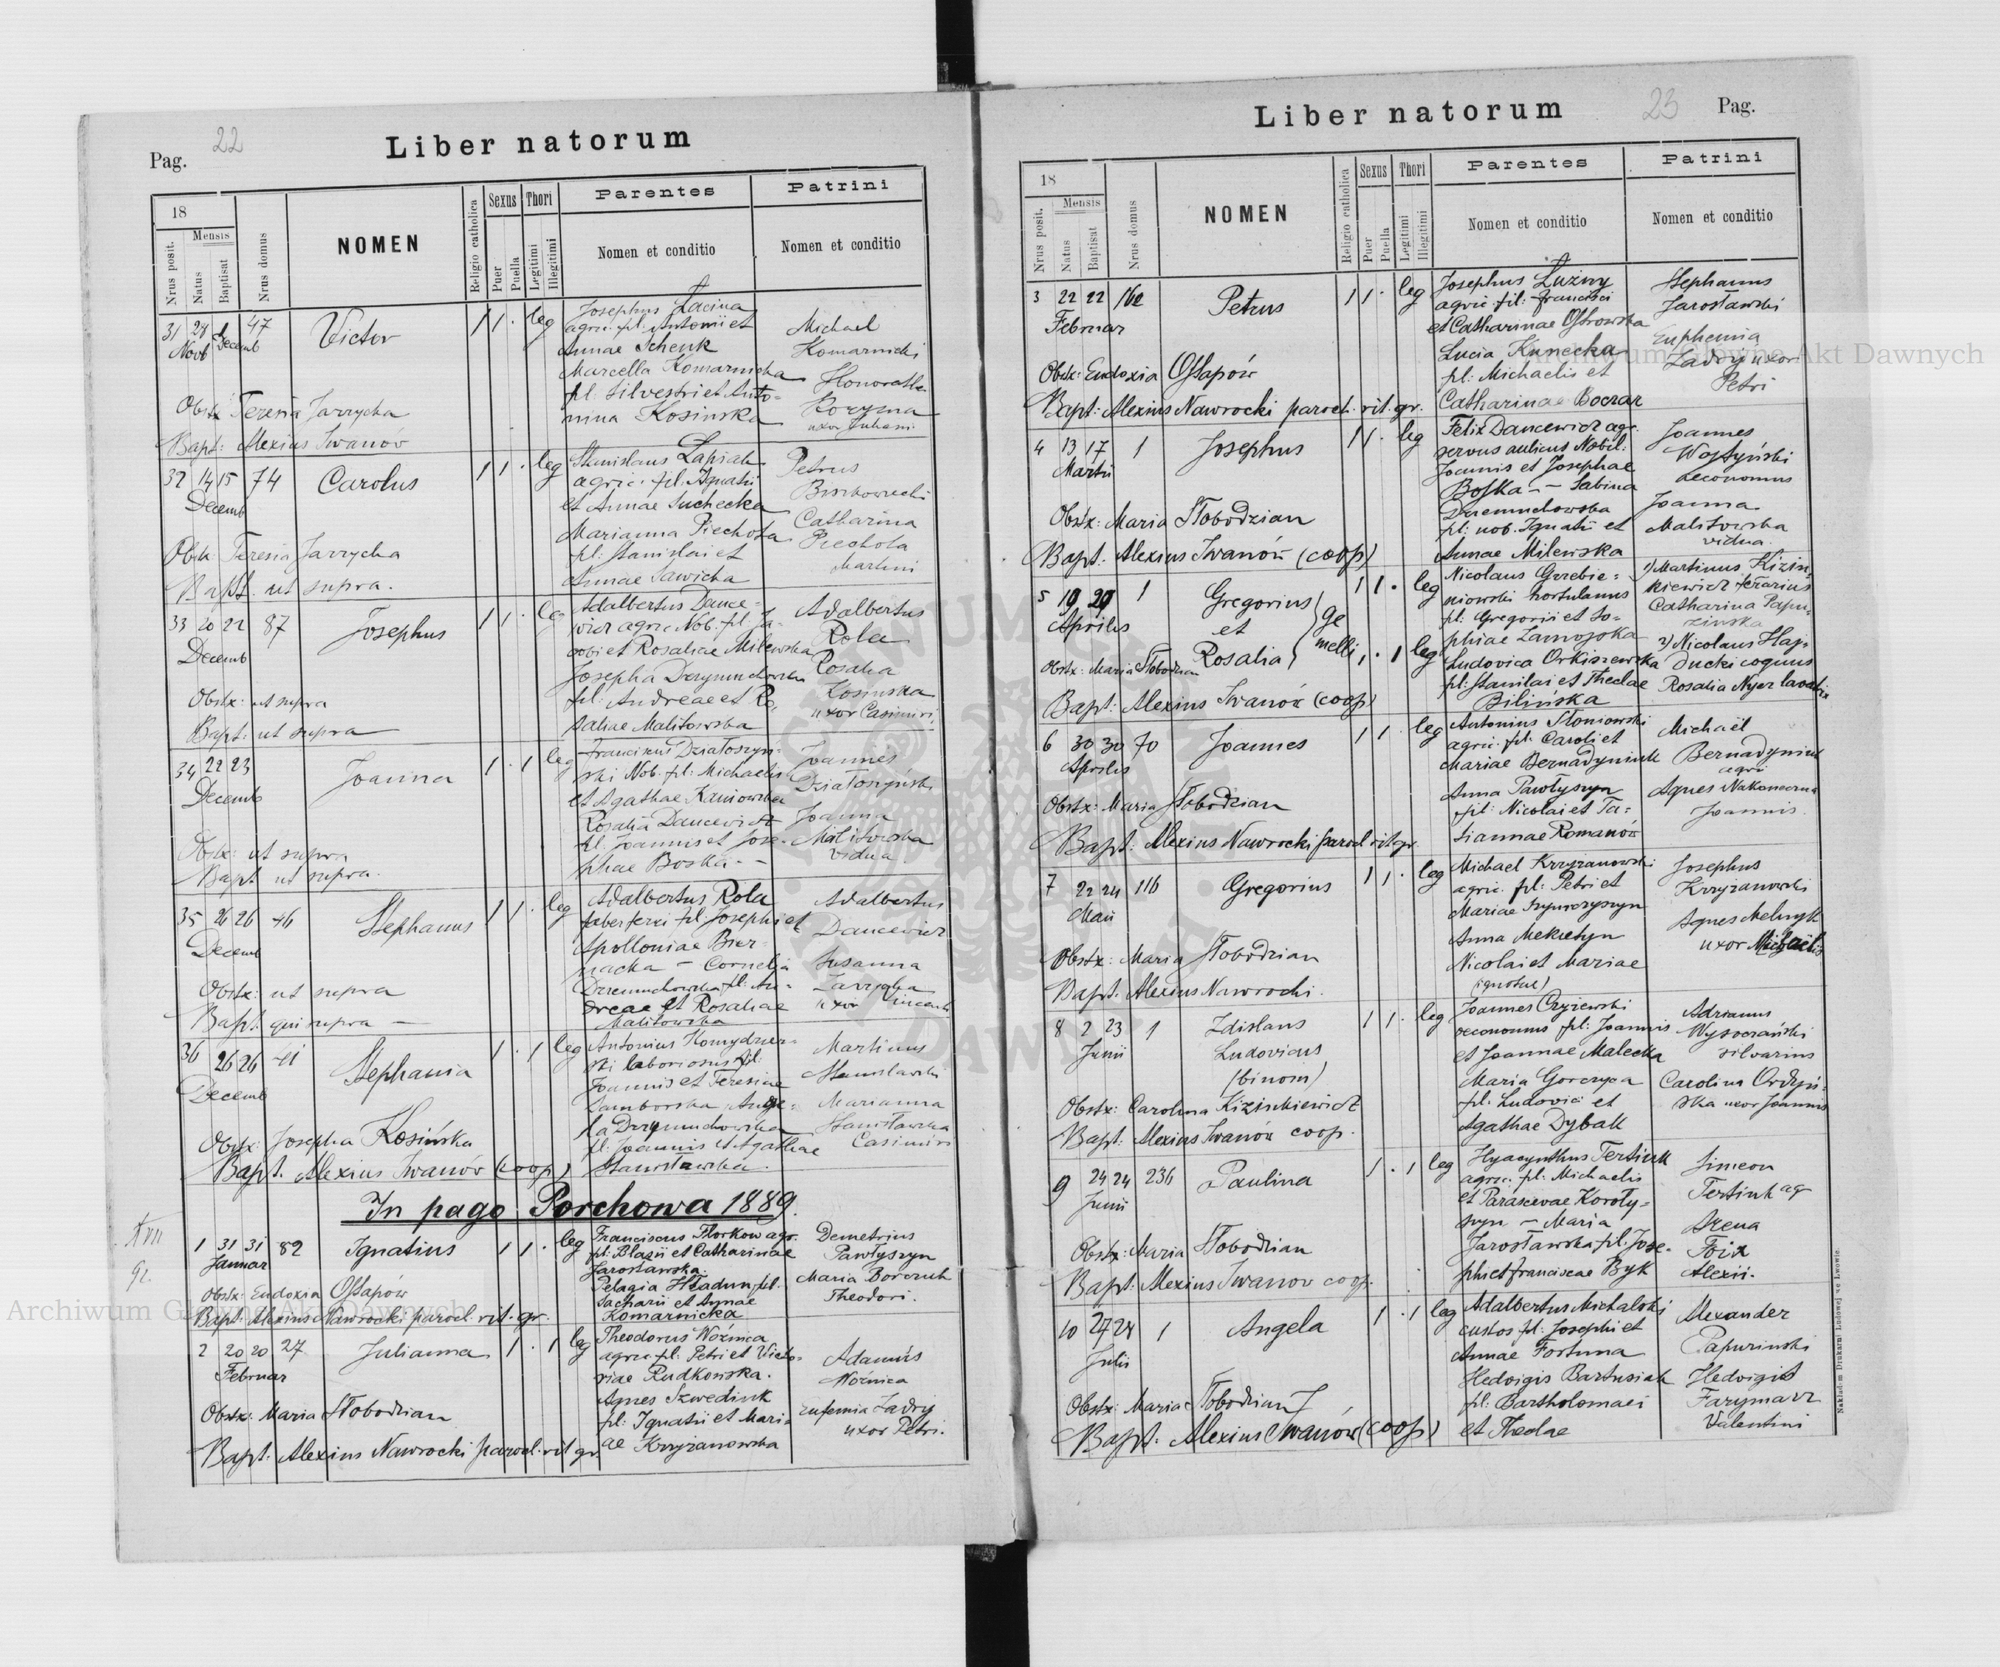 Pag. 22
Liber natorum
18
Mensis
Nrus posit.
Natus
Baptisat
Nrus domus
NOMEN
Religio catholica
Sexus
Puer
Puella
Thori
Legitimi
Illegitimi
Parentes
Nomen et conditio
Patrini
Nomen et conditio
31 Novb Decemb 47 Victor 1 1 . leg
Josephus Łacina
agric. fil. Antonii et
Annae Schenk
Marcella Komarnicka
fil. Silvestri et Anto-
nina Kosinska
Michael
Komarnicki
Honorata
uxor Juliani
Obstx Teresia Jarrycka
Bapt: Alexius Iwanów
32 14 15 74 Carolus 1 1 . leg
Decemb
Stanislaus Łapiak
agric. fil. Ignatii
et Annae Suchecka
Marianna Piechota
fil. Stanislai et
Annae Sawicka
Petrus
Catharina
Piechota
Martini
Obstx Teresia Jarrycka
Bapt. ut supra.
33 20 22 87 Josephus 1 1 . leg
Decemb
Adalbertus Dance-
wicz agric. Nob. fil. Ja-
cobi et Rosaliae Milewska
Josepha Drzymuchowska
fil. Andreae et Ro-
saliae Malitowska
Adalbertus
Rola
Rosalia
Kosinska
uxor Casimiri
Obstx: ut supra
Bapt: ut supra
34 22 23 Joanna 1 . 1 leg
Decemb
Franciscus Działoszyn-
ski Nob. fil: Michaelis
et Agathae Kaniowska
Rosalia Dancewicz
fil. Joannis et Jose-
phae Boska - -
Joannes
Działoszyński
Joanna
Malitowska
vidua
Obstx: ut supra
Bapt. ut supra.
35 26 26 46 Stephanus 1 1 . leg
Decemb
Adalbertus Rola
faber ferri fil. Josephi et
Apolloniae Bier-
nacka - Cornelia
Drzemuchowska fil. An-
dreae et Rosaliae
Malitowska
Adalbertus
Dancewicz
Susanna
Obstx: ut supra
Bapt: qui supra -
36 26 26 41 Stephania 1 . 1 leg
Decemb
Antonius
ski laboriosus fil:
Joannis et Teresiae
Damborska Ange-
la Drzymuchowska
fil. Joannis et Agathae
Stanisławska.
Martinus
Stanislawski
Marianna
Stanisławska
Casimiri
Obstx: Josepha Kosińska
Bapt. Alexius Iwanów (coop)
In pago Porchowa 1889.
1 31 31 82 Ignatius 1 1 . leg
Januar
Franciscus Florkow agr.
fil: Blasii et Catharinae
Jarosławska.
Pelagia Hładun fil.
Zachariii et Agnae
Komarnicka
Demetrius
Pawłyszyn
Maria Borczuk
Theodori.
Obstx: Eudoxia Ossapów
Bapt. Alexius Nawrocki paroch. rit. gr.
2 20 20 27 Julianna 1 . 1 leg
Februar
Theodorus Woźnica
agric. fil: Petri et Victo-
riae Rudkowska.
Agnes Szwediuk
fil: Ignatii et Mari-
ae Krzyżanowska
Adamus
Woźnica
Eufemia Zadry
uxor Petri.
Obstx: Maria Słobodzian
Bapt: Alexius Nawrocki paroch. rit gr.
Liber natorum
23 Pag.
18
Mensis
Nrus posit.
Natus
Baptisat
Nrus domus
NOMEN
Religio catholica
Sexus
Puer
Puella
Thori
Legitimi
Illegitimi
Parentes
Nomen et conditio
Patrini
Nomen et conditio
3 22 22 162 Petrus 1 1 . leg
Februar
Josephus Luzny
agric. fil: Francisci
et Catharinae Ostrowska
Lucia Kunecka
fil: Michaelis et
Catharinae Boczar
Stephanus
Jarosławski
Euphemia
Zadry uxor
Petri
Obstx: Eudoxia Ossapów
Bapt: Alexius Nawrocki paroch. rit. gr.
4 13 17 1 Josephus 1 1 . leg
Martii
Felix Dancewicz agr.
servus aulicus Nobil.
Joannis et Josephae
Boska - - Sabina
Drzemuchowska
fil: nob. Ignatii et
Annae Milewska
Joannes
Wojtyński
oeconomus
Joanna
Malitowska
vidua.
Obstx: Maria Słobodzian
Bapt: Alexius Iwanów (coop)
5 19 29 1 Gregorius 1 1 . leg
Aprilis et ge
Rosalia melli . 1 leg
Nicolaus Grzebie-
niowski hortulanus
fil: Gregorii et So-
phiae Zamojska
Ludovica Orkiszewska
fil: Stanilai et Theclae
Bilińska
1) Martinus Kizin-
kiewicz ferarius
Catharina Papu-
zinska
2) Nicolaus Haj-
ducki coquus
Rosalia Nyer lavatrix
Obstx: Maria Słobodzian
Bapt: Alexius Iwanów (coop)
6 30 30 70 Joannes 1 1 . leg
Aprilis
Antonius Słoniowski
agric. fil. Caroli et
Mariae Bernadyniuk
Anna Pawłyszyn
fil: Nicolai et Ta-
siannae Romanów
Michaël
Bernadyniuk
agri
Agnes Nakoneczna
Joannis.
Obstx: Maria Słobodzian
Bapt. Alexius Nawrocki paroch rit gr.
7 22 24 116 Gregorius 1 1 . leg
Maii
Michael Krzyżanowski
agric. fil: Petri et
Mariae Szymczyszyn
Anna Mekietyn
Nicolai et Mariae
(ignotae)
Josephus
Krzyżanowski
Agnes Melnyk
uxor Michaelis
Obstx: Maria Słobodzian
Bapt. Alexius Nawrocki.
8 2 23 1 Zdislaus 1 1 . leg
Junii Ludovicus
(binom)
Joannes Czyżewski
oeconomus fil: Joannis
et Joannae Malecka
Maria Gorczyca
fil: Ludovici et
Agathae Dybak
Adrianus
silvarius
Carolina Ordyń-
ska uxor Joannis
Obstx: Carolina Kizinkiewicz
Bapt: Alexius Iwanów coop.
9 24 24 236 Paulina 1 . 1 leg
Junii
Hyacynthus Tertiuk
agric. fil: Michaelis
et Parascevae Koroły-
szyn - Maria
Jarosławska fil. Jose-
phi et Franciscae Byk
Simeon
Tertiuk ag
Foix
Alexii.
Obstx: Maria Słobodzian
Bapt: Alexius Iwanow coop.
10 27 28 1 Angela 1 . 1 leg
Julii
Adalbertus Michalski
custos fil: Josephi et
Annae Fortuna
Hedvigis Bartusiak
fil: Bartholomaei
et Theclae
Alexander
Papuzinski
Hedvigis
Farymarz
Valentini
Obstx: Maria Słobodzian
Bapt: Alexius Iwanów (coop)
Nakładem Drukarni Ludowej we Lwowie.
Archiwum Główne Akt Dawnych
Archiwum Główne Akt Dawnych